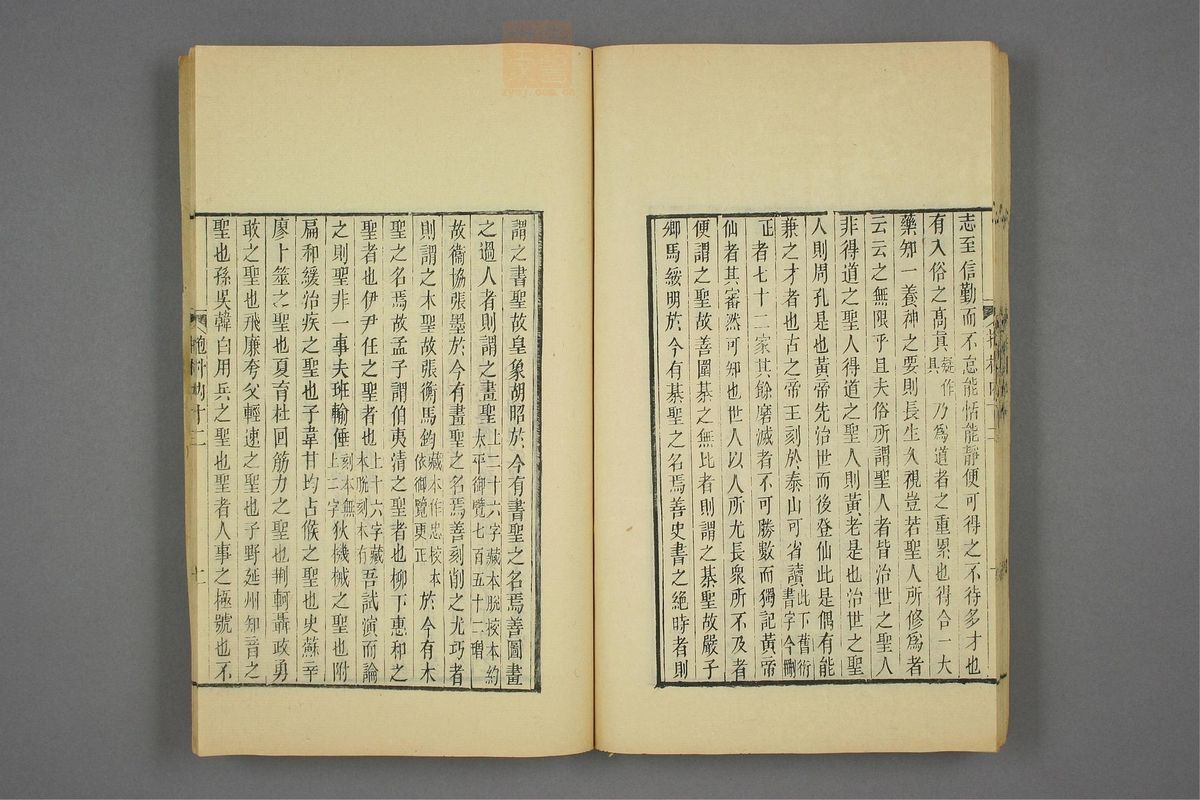 志至信勤而不怠能恬能靜便可得之不待多才也
有入俗之高眞疑作具乃爲道者之重累也得合一大
藥知一養神之要則長生久視豈若聖人所修爲者
云云之無限乎且夫俗所謂聖人者皆治世之聖人
非得道之聖人得道之聖人則黃老是也治世之聖
人則周孔是也黃帝先治世而後登仙此是偶有能
兼之才者也古之帝王刻於泰山可省讀此下舊衍書字今刪
正者七十二家其餘磨滅者不可勝數而獨記黃帝
仙者其審然可知也世人以人所尤長衆所不及者
便謂之聖故善圍棊之無比者則謂之棊聖故嚴子
卿馬綏明於今有棊聖之名焉善史書之絕時者則
謂之書聖故皇象胡昭於今有書聖之名焉善圖畫
之過人者則謂之畫聖上二十六字藏本脫校本約太平御覽七百五十二增
故衞協張墨於今有畫聖之名焉善刻削之尤巧者
則謂之木聖故張衡馬鈞藏本作忠校本依御覽更正於今有木
聖之名焉故孟子謂伯夷清之聖者也柳下惠和之
聖者也伊尹任之聖者也上十六字藏本脫刻本有吾試演而論
之則聖非一事夫班輸倕刻本無上二字狄機械之聖也附
扁和緩治疾之聖也子韋甘均占候之聖也史蘇辛
廖卜筮之聖也夏育杜回筋力之聖也荆軻聶政勇
敢之聖也飛廉夸父輕速之聖也子野延州知音之
聖也孫吳韓白用兵之聖也聖者人事之極號也不
抱朴內十二